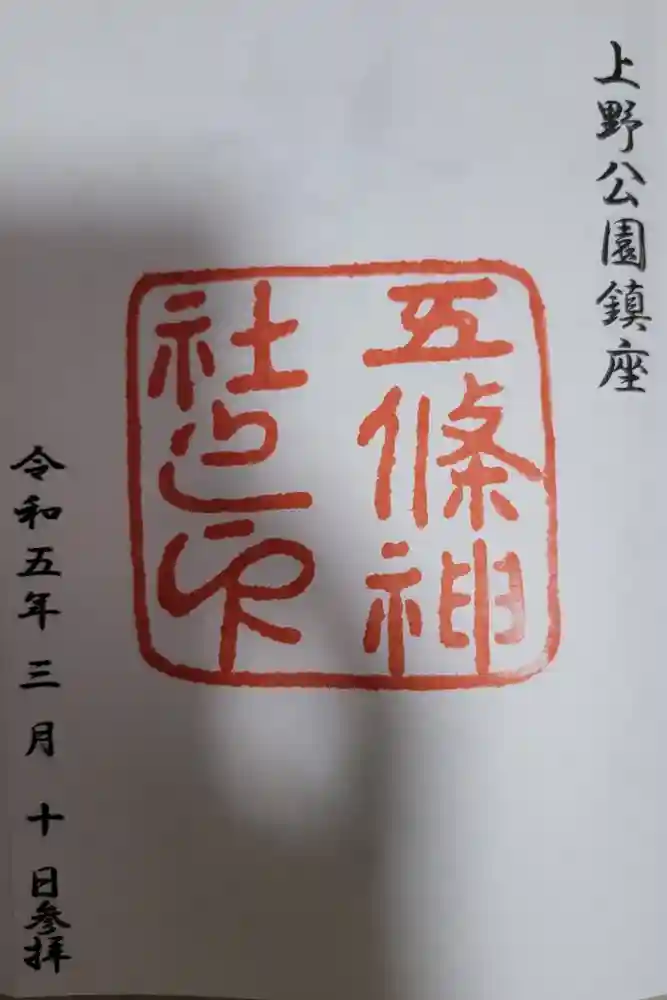 上野公園鎮座
五條神
社之印
令和五年三月十日参拝